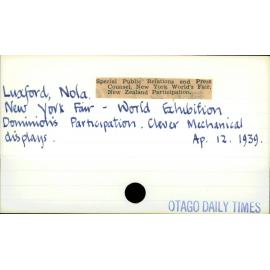 Luxford, Nola.
Special Public Relations and Press
Counsel, New York World's Fair,
New Zealand Participation.
New York Fair - World Exhibition
Dominions Participation. Clever Mechanical
displays.
Ap. 12. 1939.
OTAGO DAILY TIMES